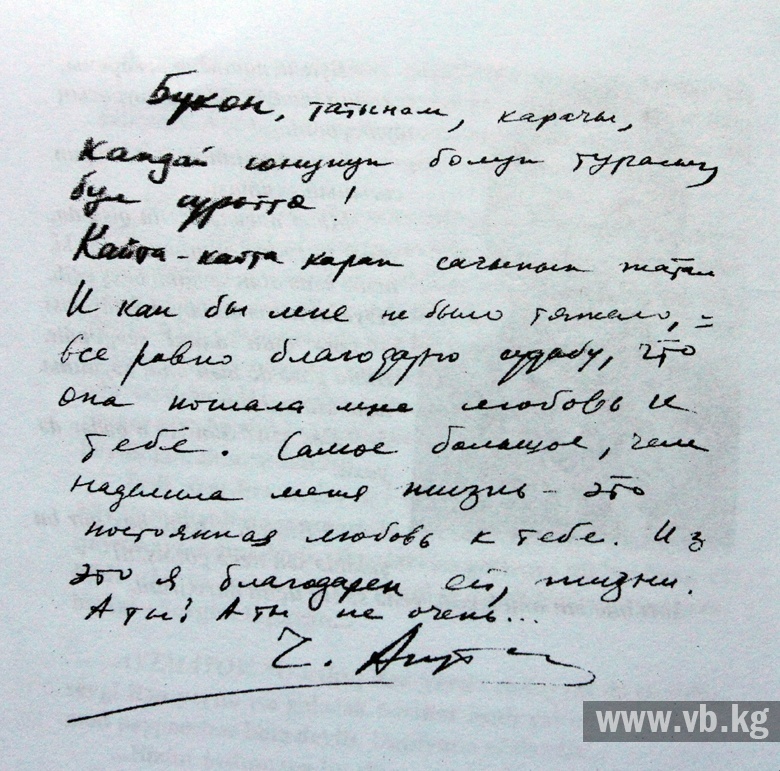 Букон, татынам, карачы,
Кандай сонунун болуп турасың
бул суротто!
Кайта-кайта карап сагынып жатам
И как бы мне не было тяжело, –
все равно благодарю судьбу, что
она послала мне любовь к
тебе. Самое большое, чем
наделила меня жизнь – это
постоянная любовь к тебе. И за
это я благодарен ей, жизни.
А ты? А ты не очень...
Ч. Айт
www.vb.kg